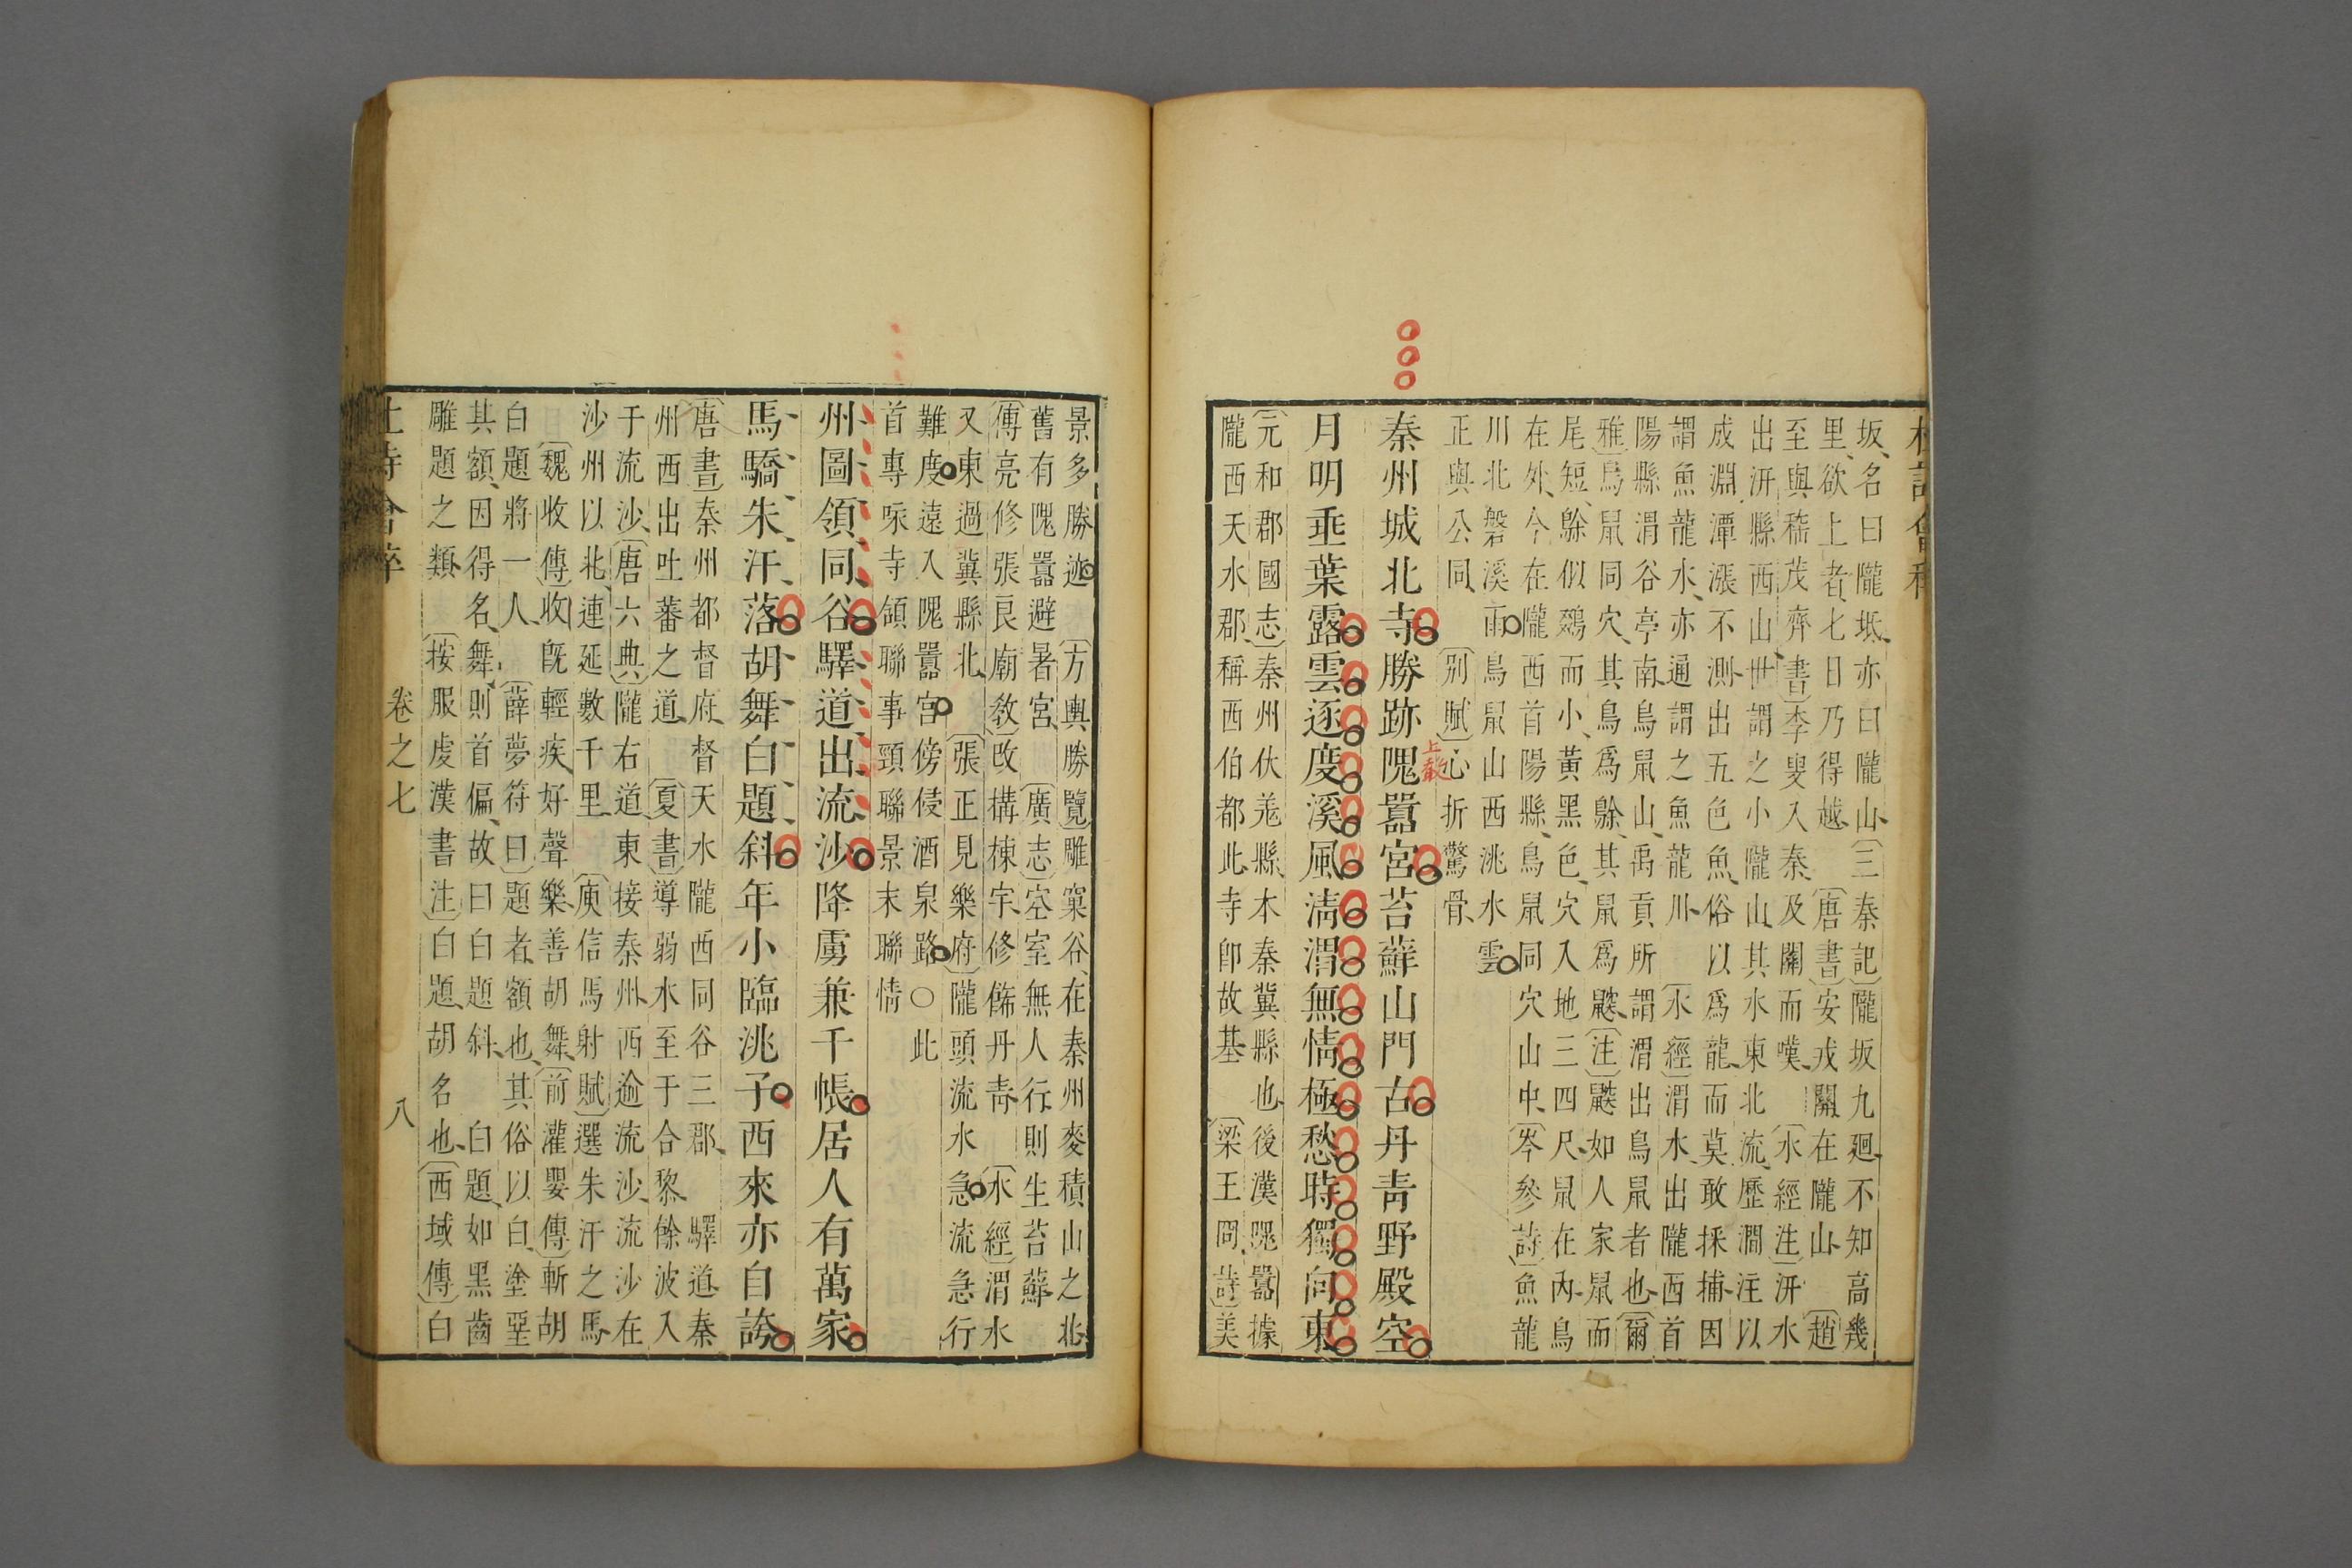 坂、名曰隴坻、亦曰隴山、〔三秦記〕隴坂九廻、不知高幾
里、欲上者、七日乃得越、〔唐書〕安戎關、在隴山、〔趙
至與嵇茂齊書〕李叟入秦、及關而嘆、〔水經注〕汧水
出汧縣西山、世謂之小隴山、其水東北流、歷澗注以
成淵、潭漲不測、出五色魚、俗以爲龍、而莫敢採捕、因
謂魚龍水、亦通謂之魚龍川、〔水經〕渭水、出隴西首
陽縣渭谷亭南鳥鼠山、禹貢所謂渭出鳥鼠者也、〔爾
雅〕鳥鼠同穴、其鳥爲鵌、其鼠爲鼵、〔注〕鼵如人家鼠而
尾短、鵌似鵽而小、黃黑色、穴入地三四尺、鼠在內、鳥
在外、今在隴西首陽縣、鳥鼠同穴山中、〔岑參詩〕魚龍
川北磐溪雨、鳥鼠山西洮水雲
正與公同、〔別賦〕心折驚骨、
秦州城北寺勝跡隗囂宮苔蘚山門古丹青野殿空
上散
月明垂葉露雲逐度溪風淸渭無情極愁時獨向東
〔元和郡國志〕秦州伏羌縣、木秦冀縣也、後漢隗囂據
隴西天水郡、稱西伯都、此寺卽故基、〔梁王冏詩〕美
景多勝迹、〔方輿勝覽〕雕窠谷、在秦州麥積山之北、
舊有隗囂避暑宮、〔廣志〕空室無人行、則生苔蘚、
〔傅亮修張良廟敎〕改構棟宇、修餙丹青、〔水經〕渭水
又東過冀縣北、〔張正見樂府〕隴頭流水急、流急行
難度、遠入隗囂宮、傍侵酒泉路、○此
首專咏寺、領聯事、頸聯景、末聯情
州圖領同谷驛道出流沙降虜兼千帳居人有萬家
馬驕朱汗落胡舞白題斜年小臨洮子西來亦自誇
〔唐書〕秦州都督府、督天水隴西同谷三郡、驛道、秦
州西出吐蕃之道、〔夏書〕導弱水至于合黎、餘波入
于流沙、〔唐六典〕隴右道、東接秦州、西逾流沙、流沙在
沙州以北、連延數千里、〔庾信馬射賦〕選朱汗之馬、
〔魏收傳〕收旣輕疾、好聲樂、善胡舞、〔前灌嬰傳〕斬胡
白題將一人、〔薛夢符曰〕題者、額也、其俗以白塗堊
其額、因得名、舞、則首偏、故曰白題斜、白題、如黑齒
雕題之類、〔按服虔漢書注〕白題、胡名也、〔西域傳〕白
卷之七 八